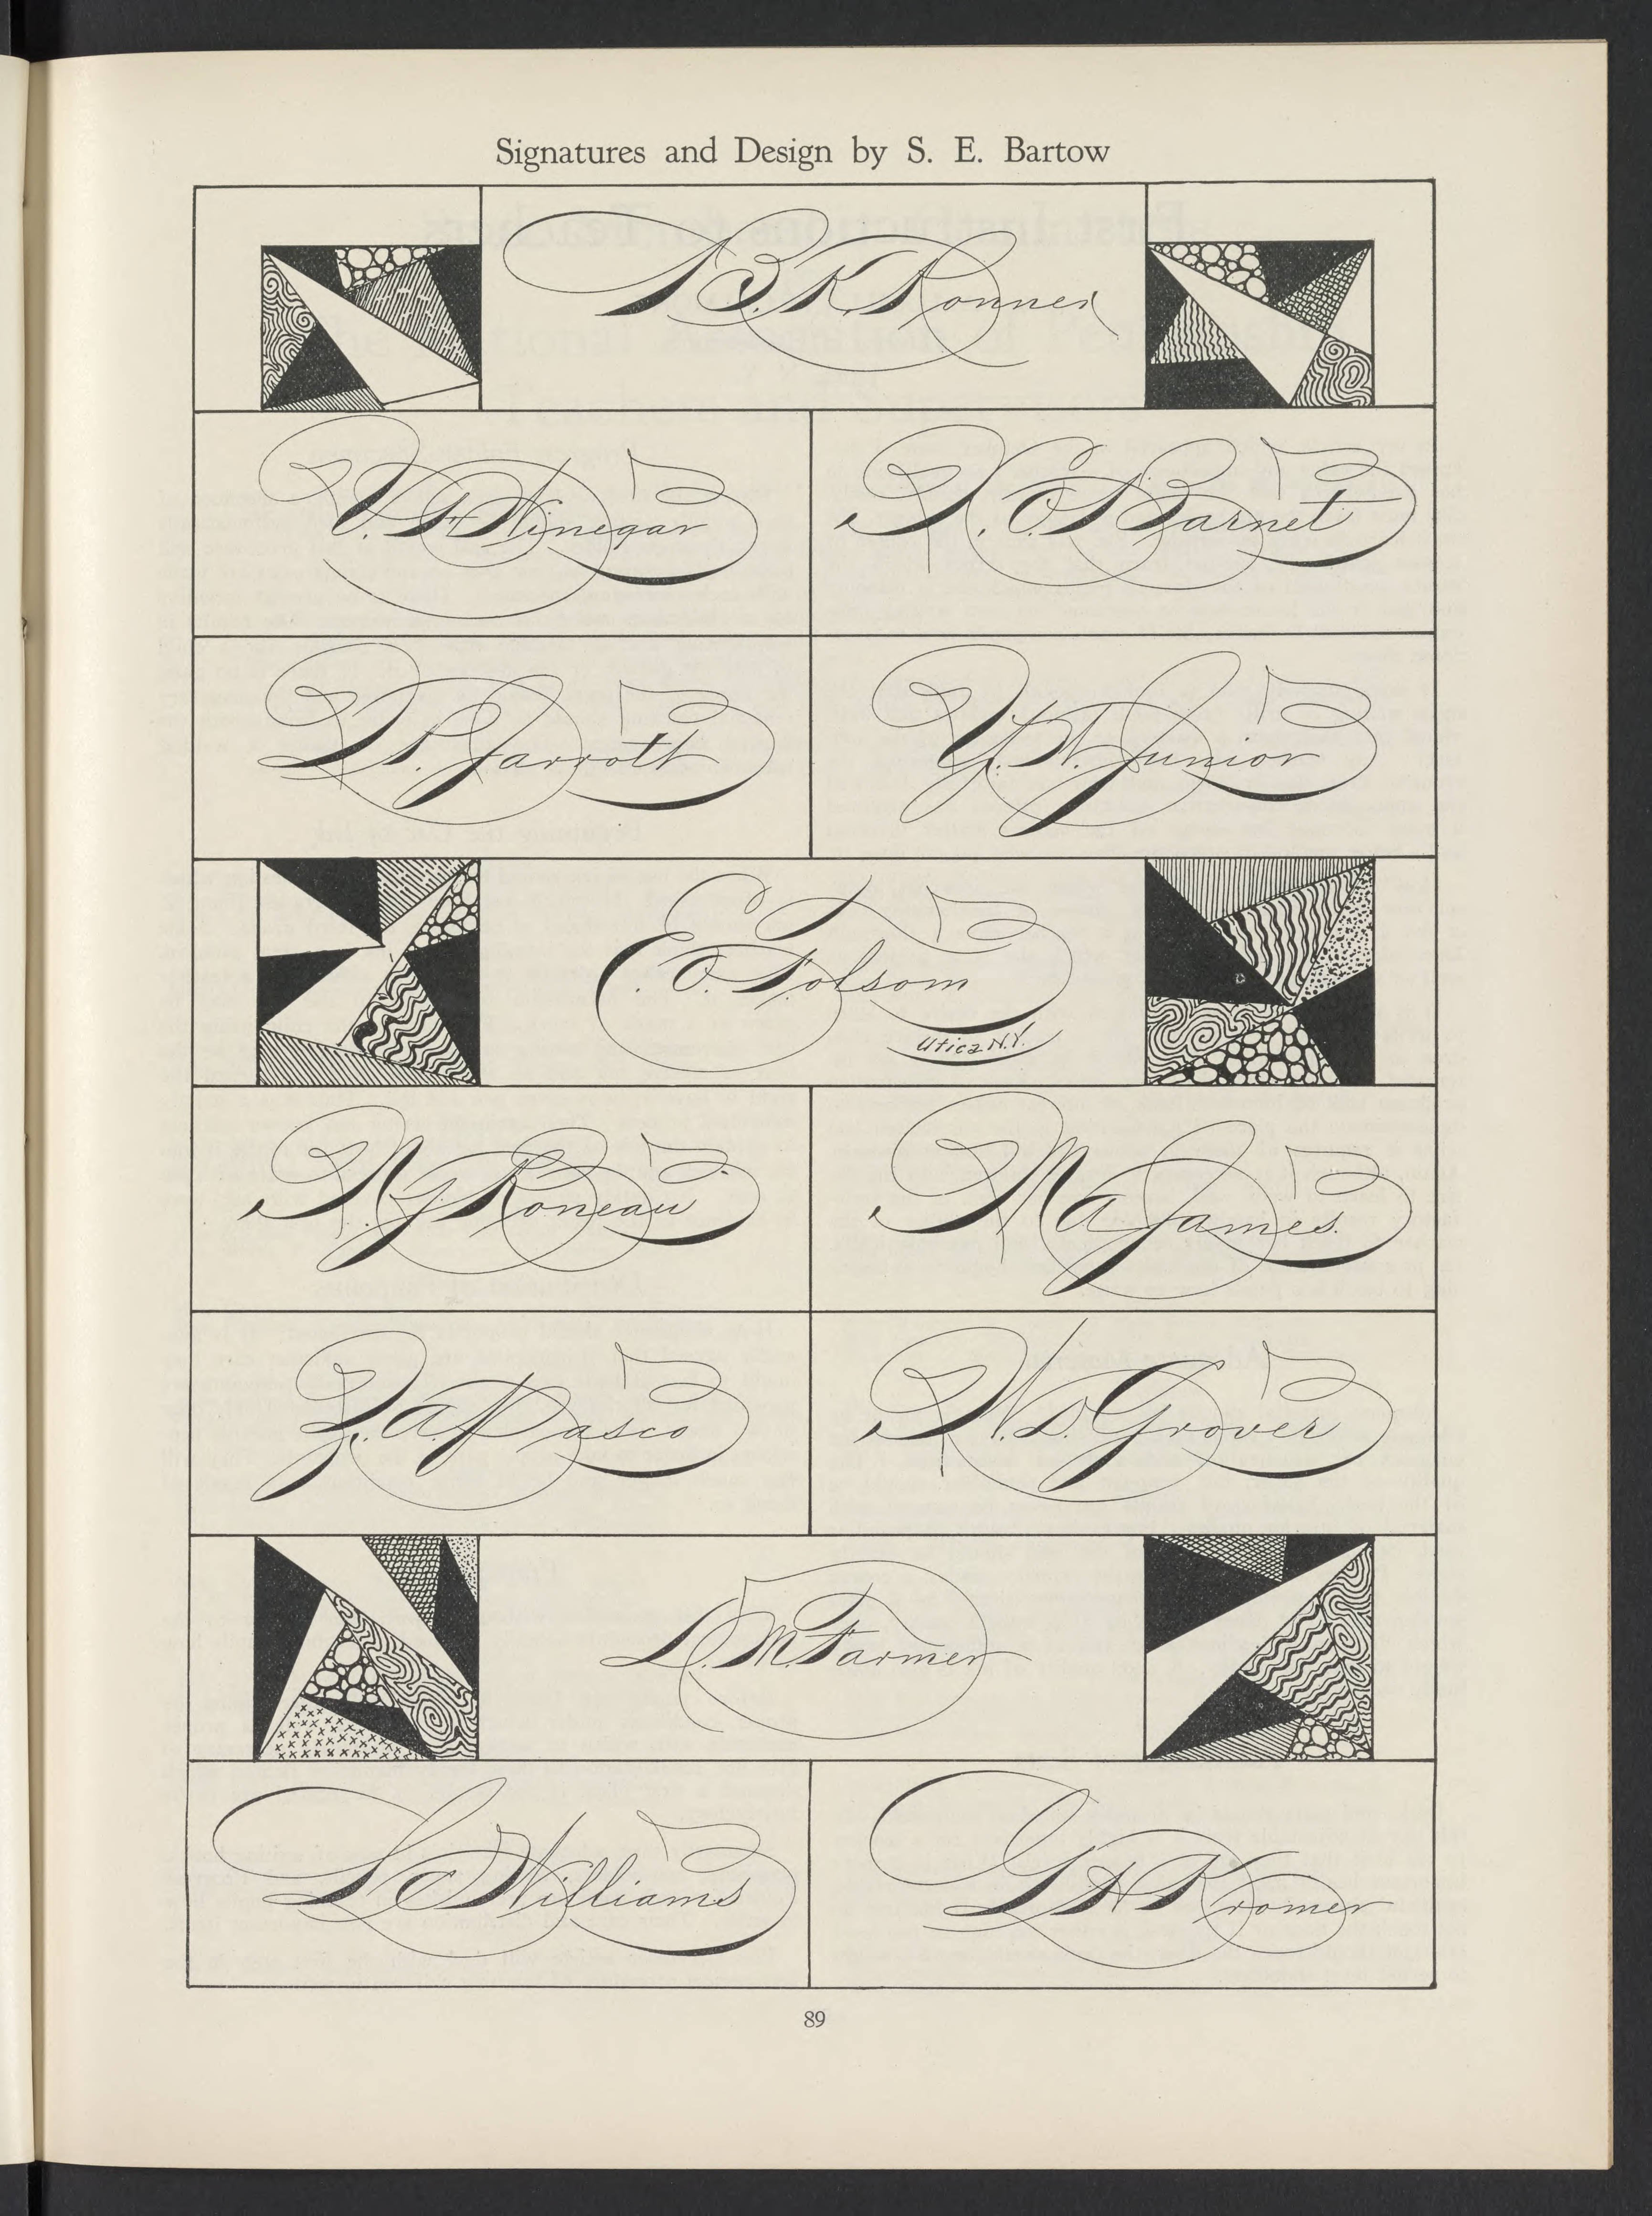 Signatures and Design by S. E. Bartow
B. K. Konner
V. F. Winegar
X. O. Barnet
Q. P. Jarrott
Y. N. Junior
E. O. Folsom
Utica N.Y.
N. J. Roneau
M. A. James.
Z. A. Pasco
W. S. Grover
L. M. Farmer
L C Williams
G H Kromer
89